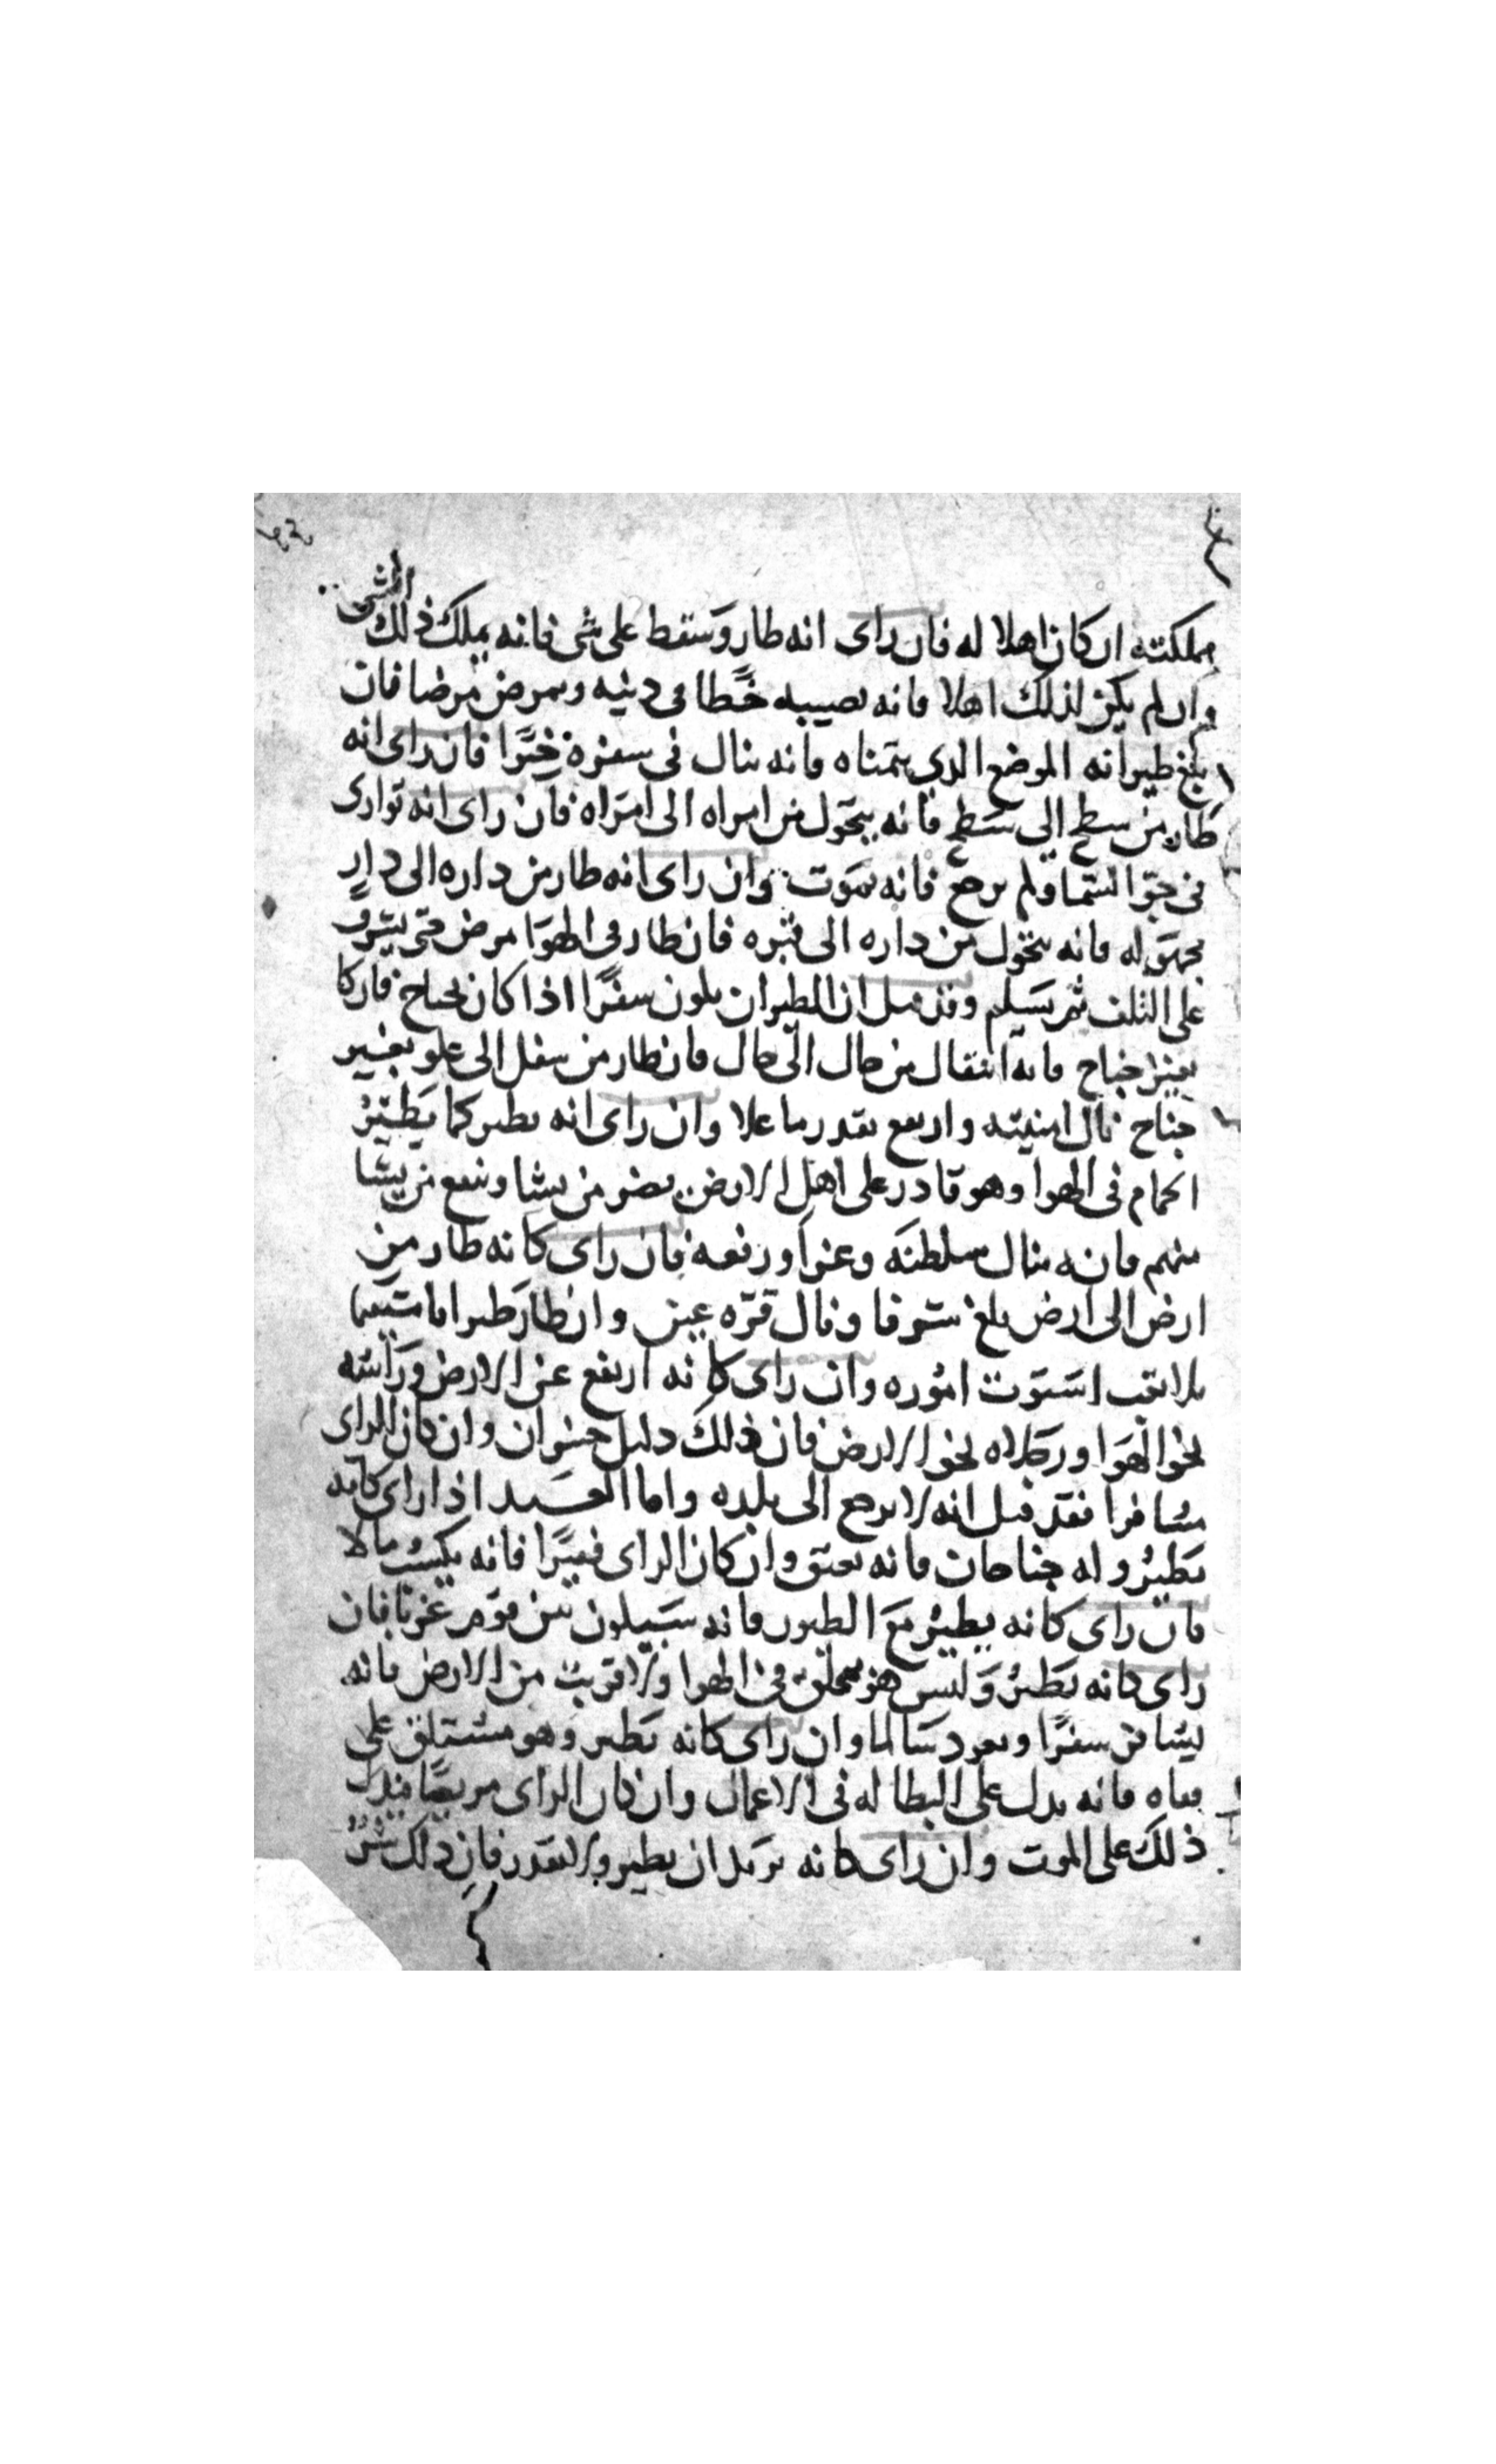 مملكته ان كان اهلا له فان راى انه طار وسقط على شى فانه يملك ذلك الشى
وان لم يكن لذلك اهلا فانه يصيبه خطا فى دينه ويمرض مرضا فان
بلغ طيرانه الموضع الدى يتمناه فانه ينال فى سفره خيرا فان راى انه
طار من سطح الى سطح فانه يتحول من امراه الى امراه فان راى انه توارى
فى جو السما ولم يرجع فانه يموت وان راى انه طار من داره الى دار
مجهوله فانه يتحول من داره الى قبره فان طار فى الهوا مرض حتى يشرف
على التلف ثم يسلم وقد قيل ان الطيران يكون سفرا اذا كان بجناح فان كا
بغير جناح فانه انتقال من حال الى حال فان طار من سفل الى علو بغير
جناح نال امنيته وارتفع بقدر ما علا وان راى انه يطير كما يطير
الحمام فى الهوا وهو قادر على اهل الارض يضر من يشا وينفع من يشا
منهم فانه ينال سلطنه وعزا ورفعه فان راى كانه طار من
ارض الى ارض بلغ شرفا ونال قره عين وان طار طيرانا مستقيما
بلا تعب استوت اموره وان راى كانه ارتفع عن الارض وراسه
نحو الهوا ورجلاه نحو الارض فان ذلك دليل خسران وان كان الراى
مسافرا فقد قيل انه لا يرجع الى بلده واما العبد اذا راى كانه
يطير وله جناحان فانه يعتق وان كان الراى فقيرا فانه يكسب مالا
فان راى كانه يطير مع الطيور فانه سيكون بين قوم غربا فان
راى كانه يطير وليس هو محلق فى الهوا ولا قريب من الارض فانه
يسافر سفرا ويعود سالما وان راى كانه يطير وهو مستلق على
قفاه فانه يدل على البطاله فى الاعمال وان كان الراى مريضا فيدل
ذلك على الموت وان راى كانه يريد ان يطير ولا يقدر فان ذلك شر